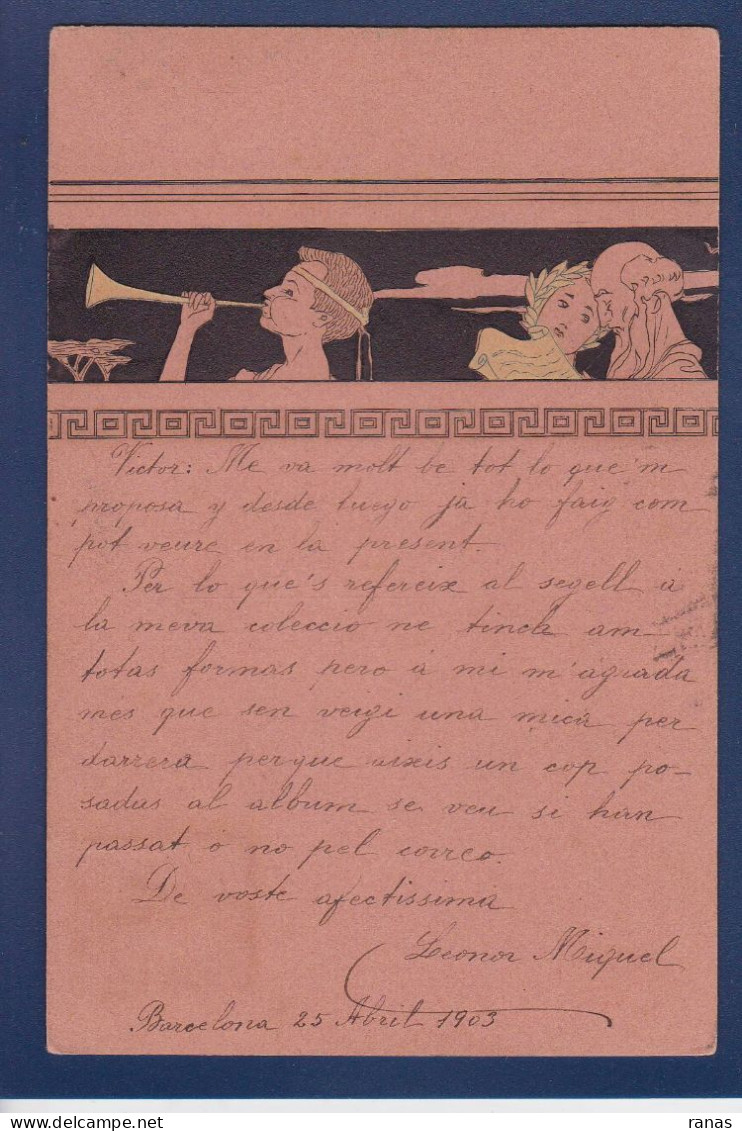 Victor: Me va molt be tot lo que'm
proposa y desde luego ja ho faig com
pot veure en la present.
Per lo que's refereix al segell á
la meva coleccio ne tinch am
totas formas pero á mi m'agrada
mes que sen vegi una mica per
darrera perque aixis un cop po-
sadas al album se veu si han
passat o no pel correo.
De voste afectissima
Leonor Miquel
Barcelona 25 Abril 1903
ranas